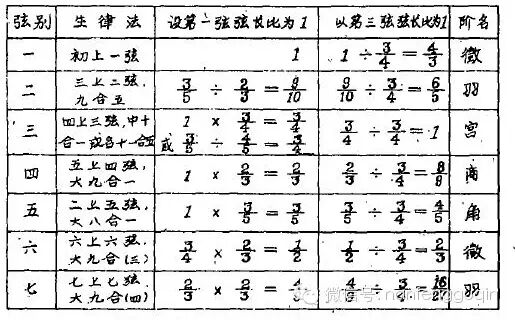 弦别 生律法 设第一弦弦长比为1 以第三弦弦长比为1 阶名
一 初上一弦 1 1÷3/4=4/3 徵
二 三上二弦, 九合五 3/5÷2/3=9/10 9/10÷3/4=6/5 羽
三 四上三弦,中十 合一或名十一合五 1×3/4=3/4 或3/5÷4/5=3/4 3/4÷3/4=1 宫
四 五上四弦, 大九合一 1×2/3=2/3 2/3÷3/4=8/9 商
五 二上五弦, 大八合一 1×3/5=3/5 3/5÷3/4=4/5 角
六 六上六弦, 大九合(三) 3/4×2/3=1/2 1/2÷3/4=2/3 徵
七 七上七弦, 大九合(四) 2/3×2/3=4/ 4/ ÷3/4=16/2 羽
微信号: nanfengguqin